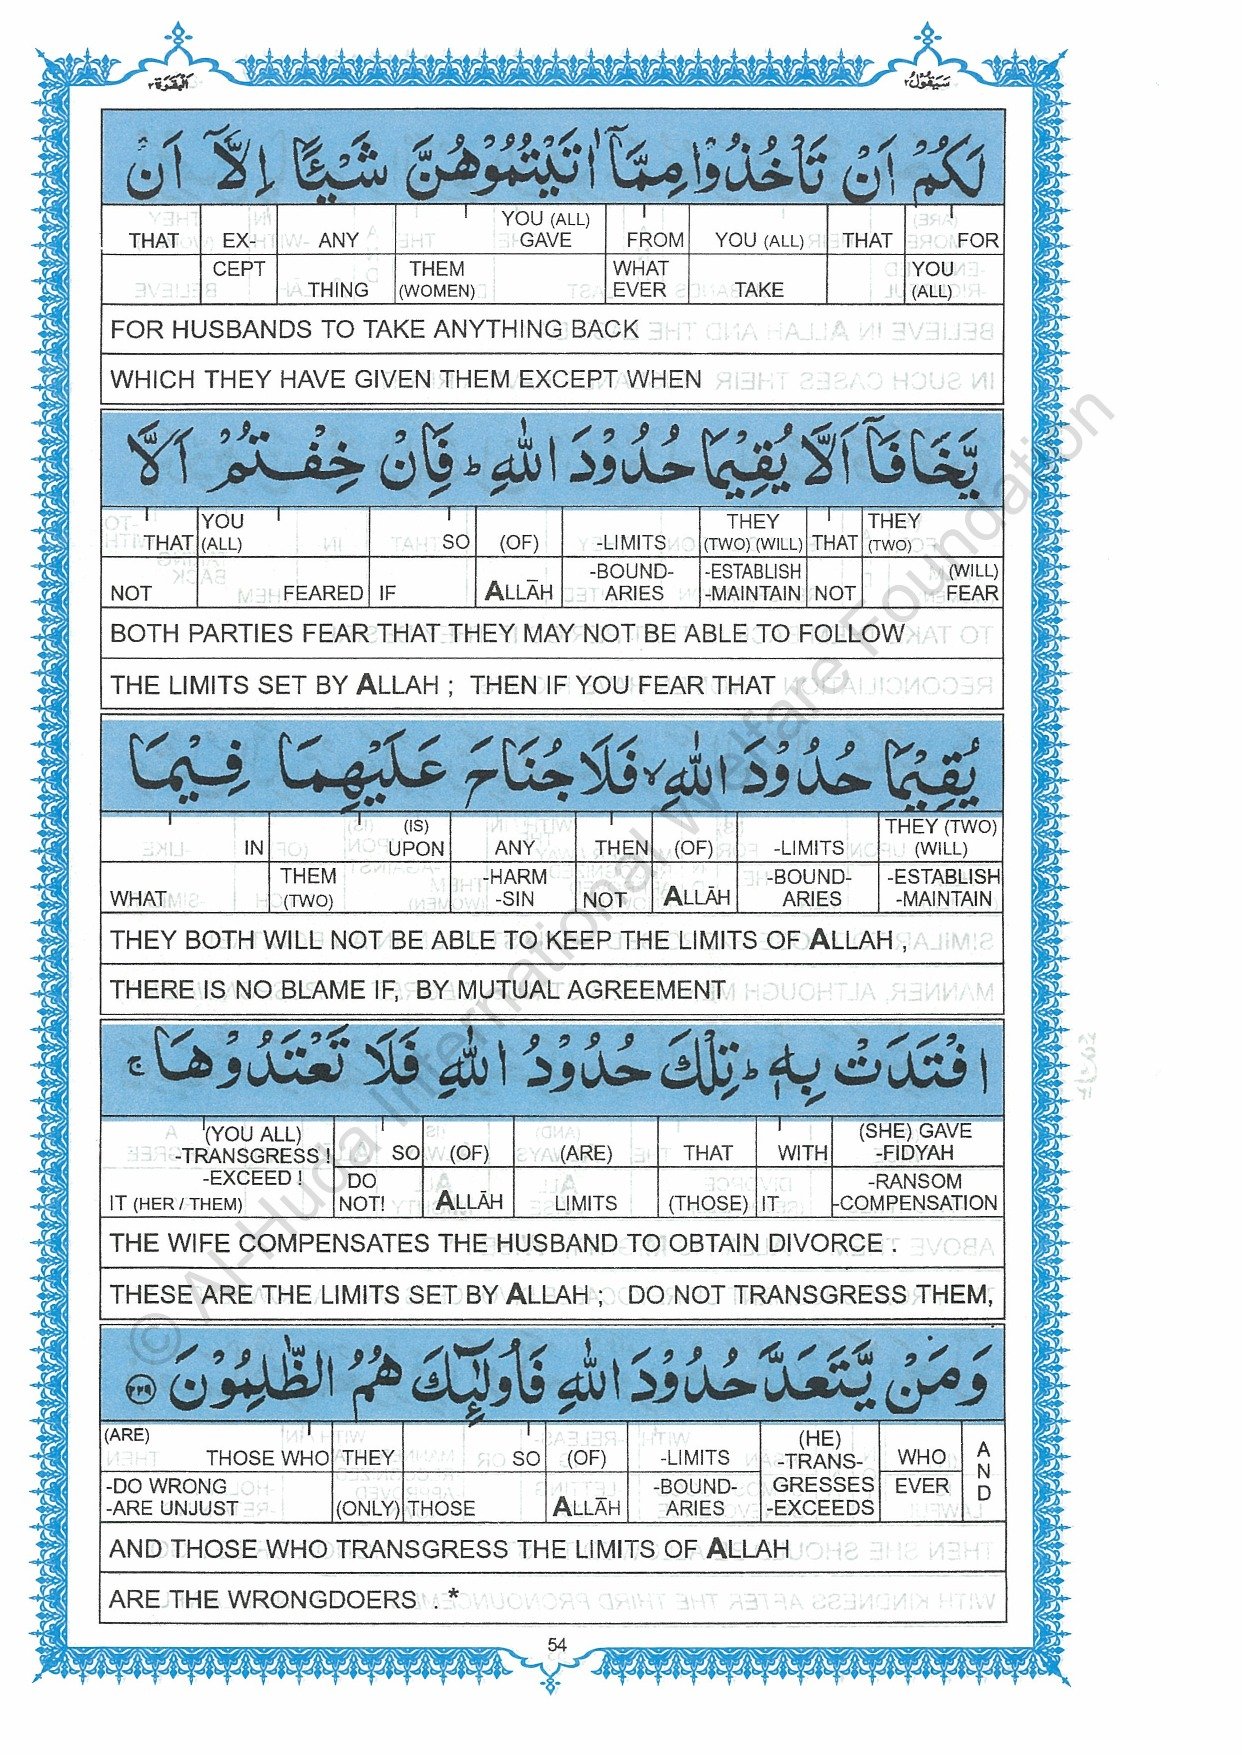 سَيَقُوْلُ ٢ الْبَقَرَة ٢
لَكُمْ اَنْ تَاْخُذُوْا مِمَّاۤ اٰتَيْتُمُوْهُنَّ شَيْـًٔا اِلَّاۤ اَنْ
THAT EX- ANY YOU (ALL) GAVE FROM YOU (ALL) THAT FOR
CEPT THING THEM (WOMEN) WHAT EVER TAKE YOU (ALL)
FOR HUSBANDS TO TAKE ANYTHING BACK
WHICH THEY HAVE GIVEN THEM EXCEPT WHEN
يَّخَافَاۤ اَلَّا يُقِيْمَا حُدُوْدَ اللّٰهِ ؕ فَاِنْ خِفْتُمْ اَلَّا
THAT YOU (ALL) SO (OF) -LIMITS THEY (TWO) (WILL) THAT THEY (TWO)
NOT FEARED IF ALLĀH -BOUND- ARIES -ESTABLISH -MAINTAIN NOT (WILL) FEAR
BOTH PARTIES FEAR THAT THEY MAY NOT BE ABLE TO FOLLOW
THE LIMITS SET BY ALLAH ; THEN IF YOU FEAR THAT
يُقِيْمَا حُدُوْدَ اللّٰهِ ۙ فَلَا جُنَاحَ عَلَيْهِمَا فِيْمَا
IN (IS) UPON ANY THEN (OF) -LIMITS THEY (TWO) (WILL)
WHAT THEM (TWO) -HARM -SIN NOT ALLĀH -BOUND- ARIES -ESTABLISH -MAINTAIN
THEY BOTH WILL NOT BE ABLE TO KEEP THE LIMITS OF ALLAH ,
THERE IS NO BLAME IF, BY MUTUAL AGREEMENT
افْتَدَتْ بِهٖ ؕ تِلْكَ حُدُوْدُ اللّٰهِ فَلَا تَعْتَدُوْهَا ۚ
(YOU ALL) -TRANSGRESS ! SO (OF) (ARE) THAT WITH (SHE) GAVE -FIDYAH
IT (HER / THEM) -EXCEED ! DO NOT! ALLĀH LIMITS (THOSE) IT -RANSOM -COMPENSATION
THE WIFE COMPENSATES THE HUSBAND TO OBTAIN DIVORCE .
THESE ARE THE LIMITS SET BY ALLAH ; DO NOT TRANSGRESS THEM,
وَمَنْ يَّتَعَدَّ حُدُوْدَ اللّٰهِ فَاُولٰٓئِكَ هُمُ الظّٰلِمُوْنَ ٢٢٩
(ARE) THOSE WHO THEY SO (OF) -LIMITS (HE) -TRANS- WHO AND
-DO WRONG -ARE UNJUST (ONLY) THOSE ALLĀH -BOUND- ARIES GRESSES -EXCEEDS EVER
AND THOSE WHO TRANSGRESS THE LIMITS OF ALLAH
ARE THE WRONGDOERS . *
54
© Al-Huda International Welfare Foundation